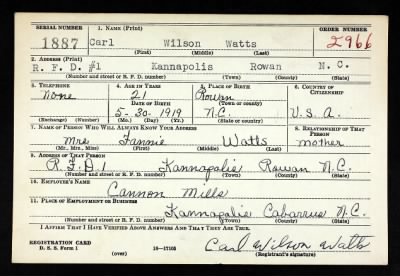 SERIAL NUMBER 1. NAME (Print) ORDER NUMBER
1887 Carl Wilson Watts 2966
(First) (Middle) (Last)
2. ADDRESS (Print)
R. F. D. #1 Kannapolis Rowan N. C.
(Number and street or R. F. D. number) (Town) (County) (State)
3. TELEPHONE 4. AGE IN YEARS 5. PLACE OF BIRTH 6. COUNTRY OF CITIZENSHIP
None 21 Rowan
DATE OF BIRTH (Town or county)
5-30-1919 N.C. U.S.A.
(Exchange) (Number) (Mo.) (Day) (Yr.) (State or country)
7. NAME OF PERSON WHO WILL ALWAYS KNOW YOUR ADDRESS 8. RELATIONSHIP OF THAT PERSON
Mrs Fannie Watts mother
(Mr., Mrs., Miss) (First) (Middle) (Last)
9. ADDRESS OF THAT PERSON
R.F.D. 1 Kannapolis Rowan N.C.
(Number and street or R. F. D. number) (Town) (County) (State)
10. EMPLOYER'S NAME
Cannon Mills
11. PLACE OF EMPLOYMENT OR BUSINESS
Kannapolis Cabarrus N.C.
(Number and street or R. F. D. number) (Town) (County) (State)
I AFFIRM THAT I HAVE VERIFIED ABOVE ANSWERS AND THAT THEY ARE TRUE.
REGISTRATION CARD
D. S. S. Form 1 16—17105 Carl Wilson Watts
(over) (Registrant's signature)